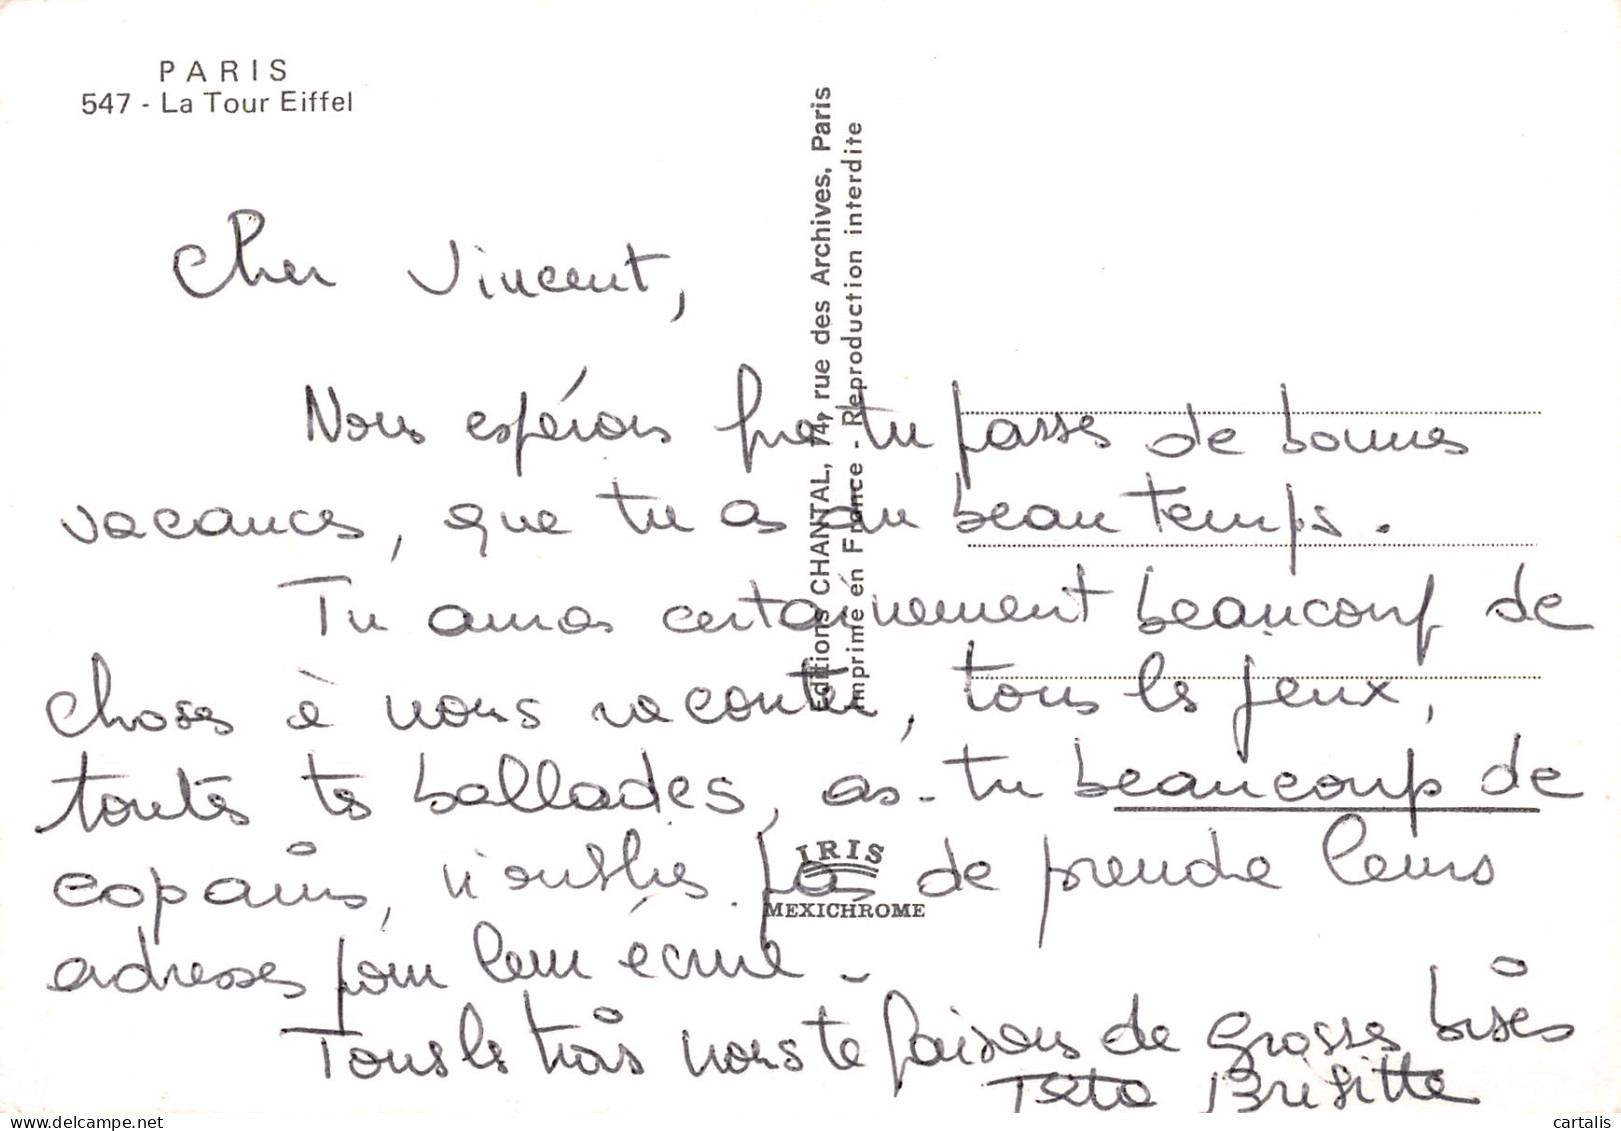 PARIS
547 - La Tour Eiffel
Editions CHANTAL, 74, rue des Archives, Paris
Imprimé en France - Reproduction interdite
Cher Vincent,
Nous espérons que tu passes de bonnes
vacances, que tu as du beau temps.
Tu auras certainement beaucoup de
choses à nous raconter, tous les jeux,
toutes tes ballades, as-tu beaucoup de
copains, n'oublies pas de prendre leurs
adresses pour leur écrire -
Tous les trois nous te faisons de grosses bises
Tata Brigitte
IRIS
MEXICHROME
delcampe.net
cartalis